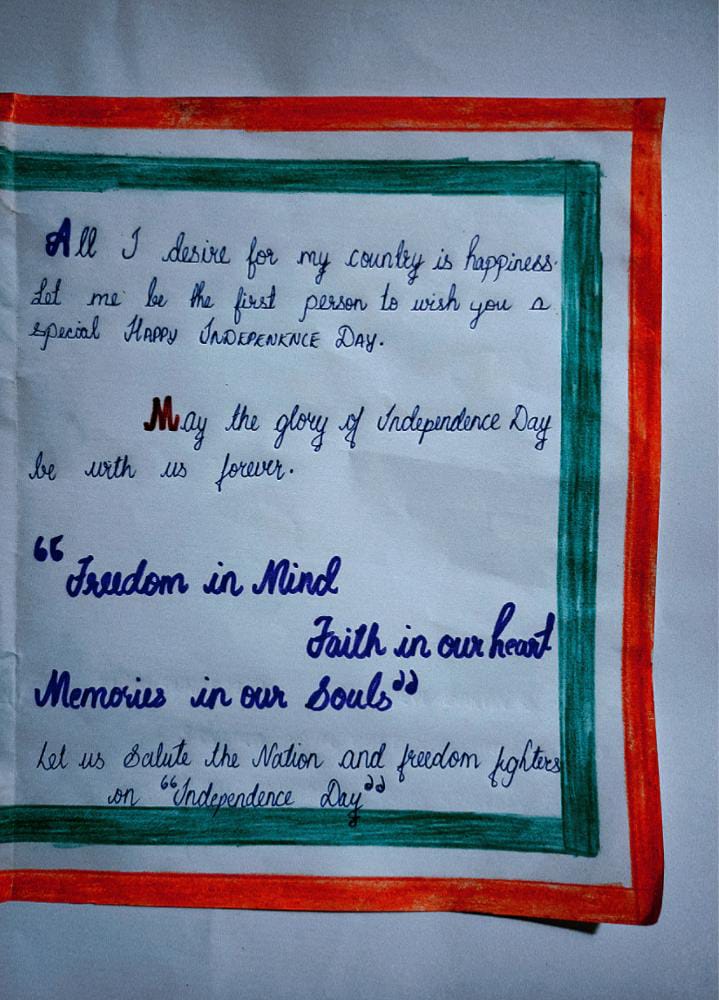 All I desire for my country is happiness.
Let me be the first person to wish you a
special HAPPY INDEPENKNCE DAY.
May the glory of Independence Day
be with us forever.
“Freedom in Mind
Faith in our heart
Memories in our Souls”
Let us Salute the Nation and freedom fighters
on “Independence Day”